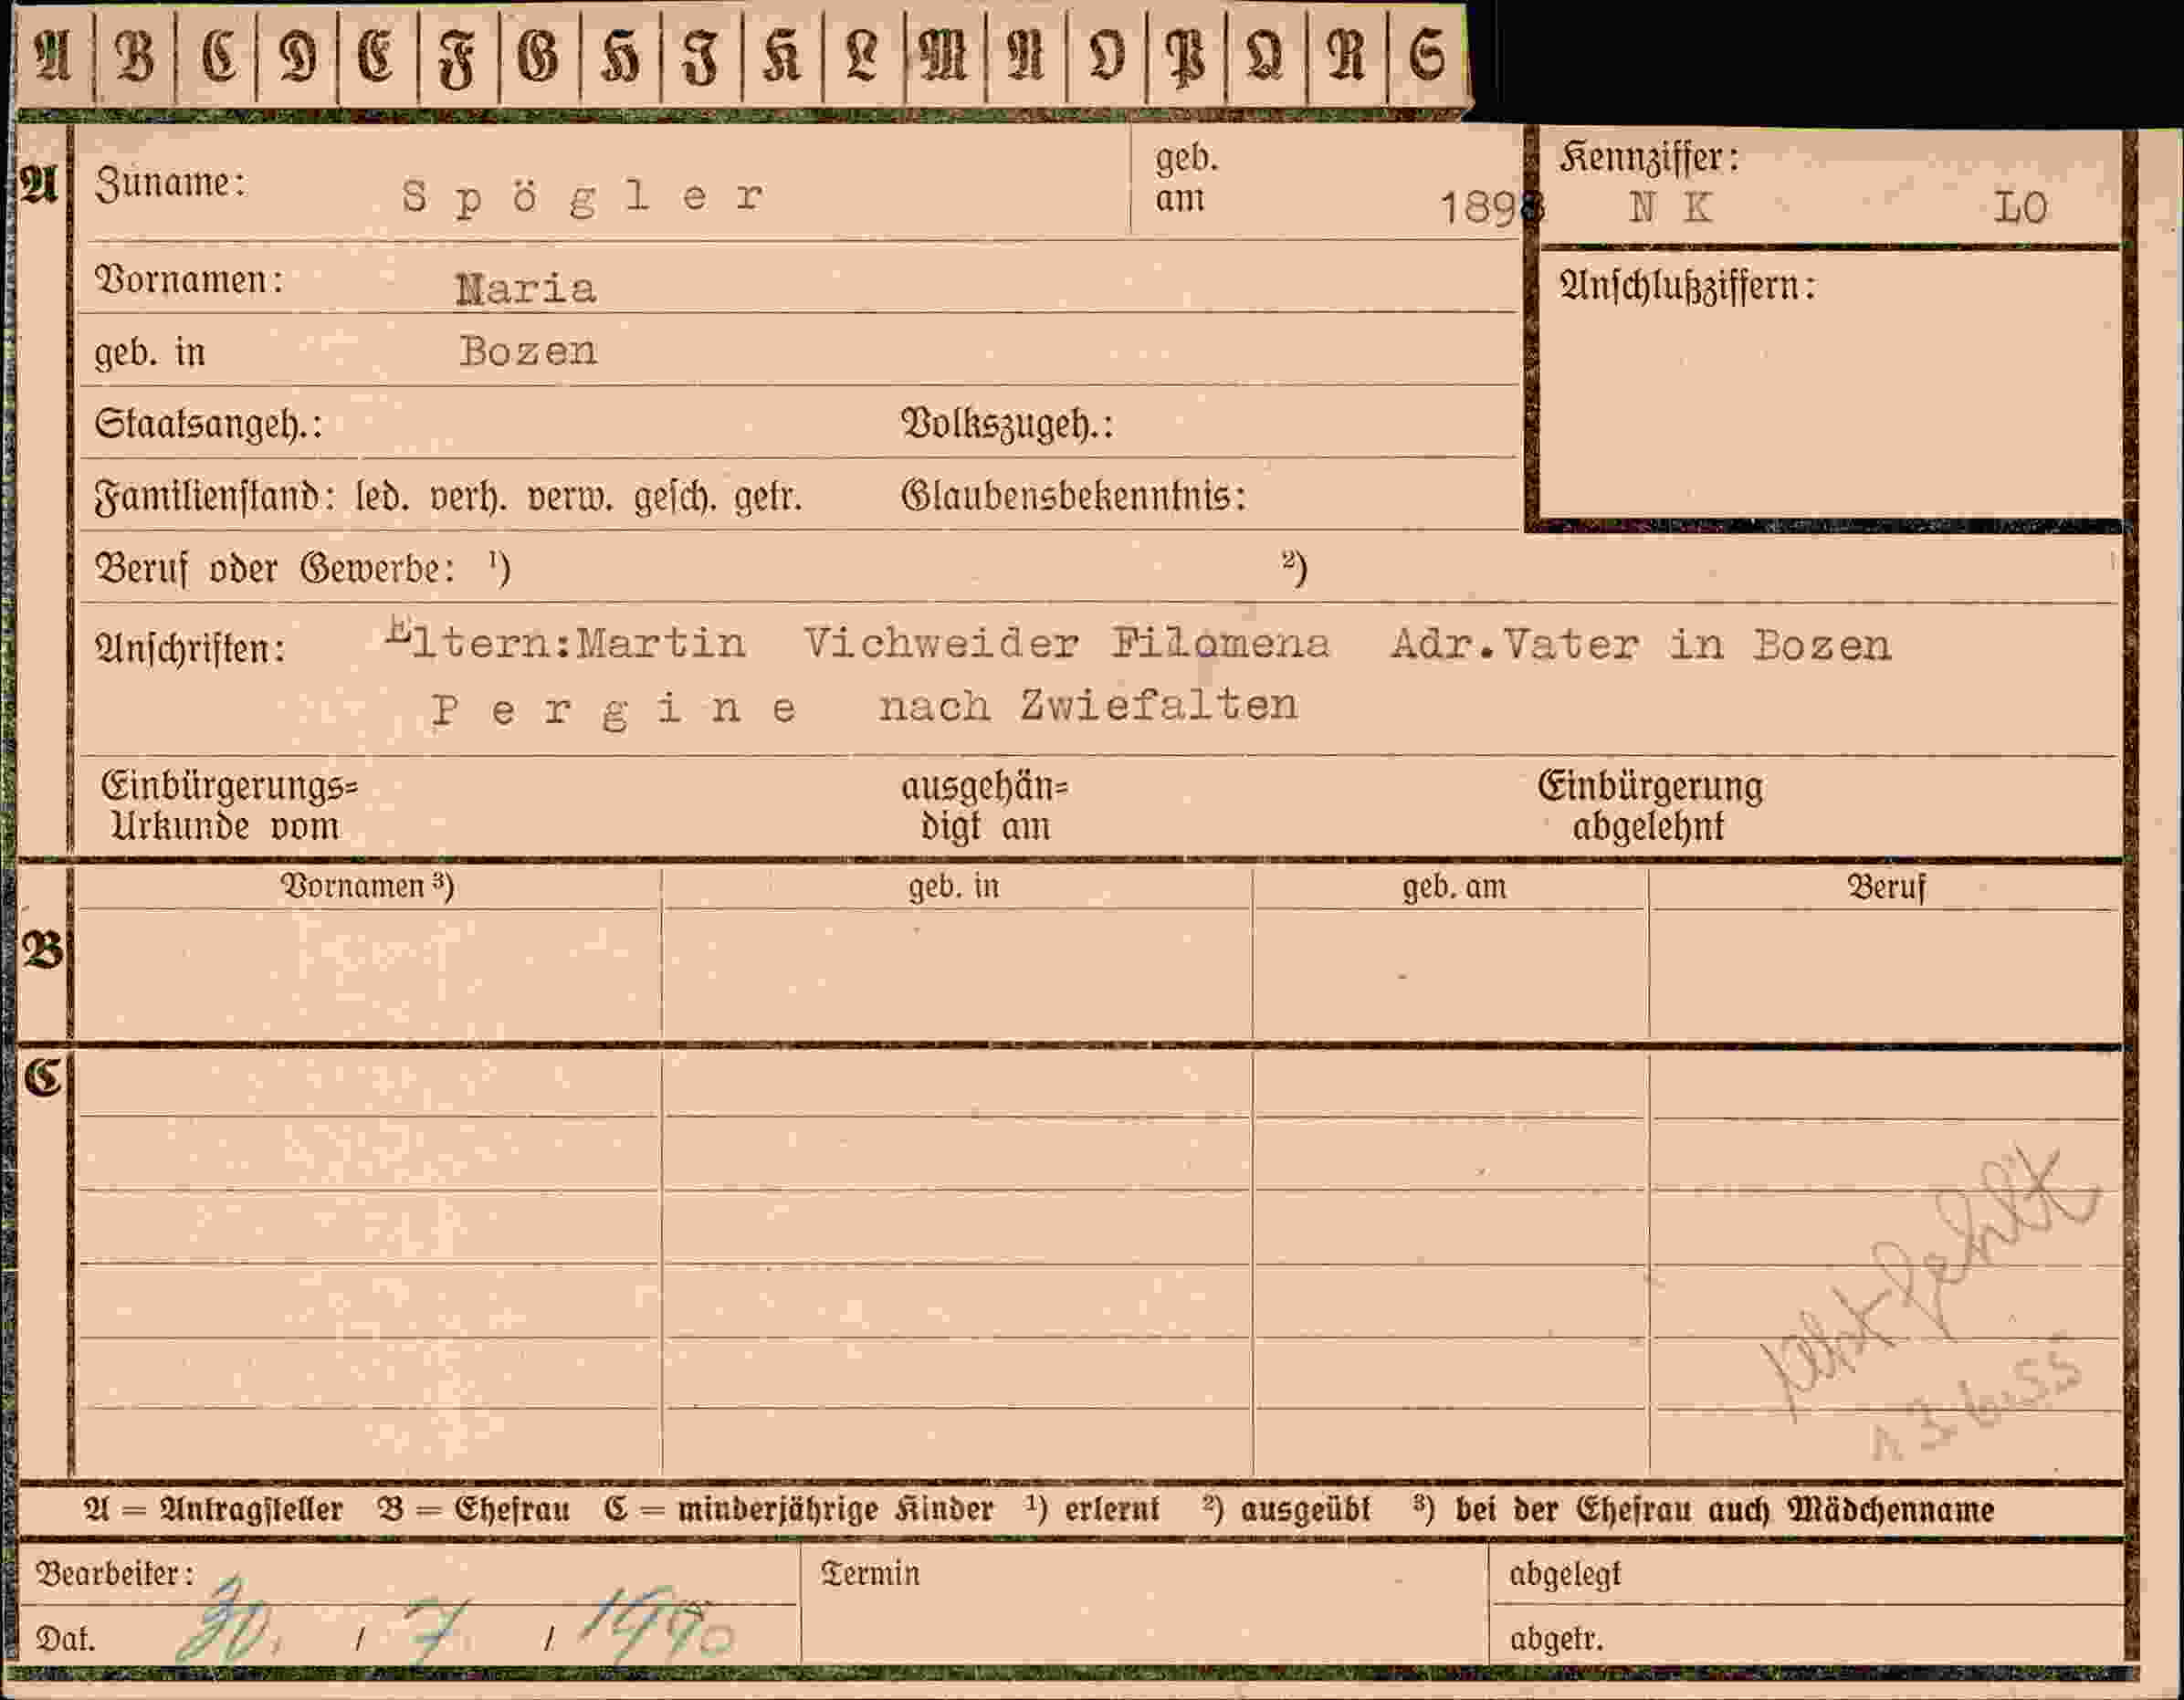 A B C D E F G H I K L M N O P Q R S
A Zuname: Spögler geb. am 1898 Kennziffer: N K LO
Vornamen: Maria
Anschlußziffern:
geb. in Bozen
Staatsangeh.: Volkszugeh.:
Familienstand: led. verh. verw. gesch. getr. Glaubensbekenntnis:
Beruf oder Gewerbe: ¹) ²)
Anschriften: Eltern:Martin Vichweider Filomena Adr.Vater in Bozen
Pergine nach Zwiefalten
Einbürgerungs= ausgehän= Einbürgerung
Urkunde vom digt am abgelehnt
Vornamen ³) geb. in geb. am Beruf
B
C
fehlt
A = Antragsteller B = Ehefrau C = minderjährige Kinder ¹) erlernt ²) ausgeübt ³) bei der Ehefrau auch Mädchenname
Bearbeiter: Termin abgelegt
Dat. 30. / 7 / 1940 abgetr.